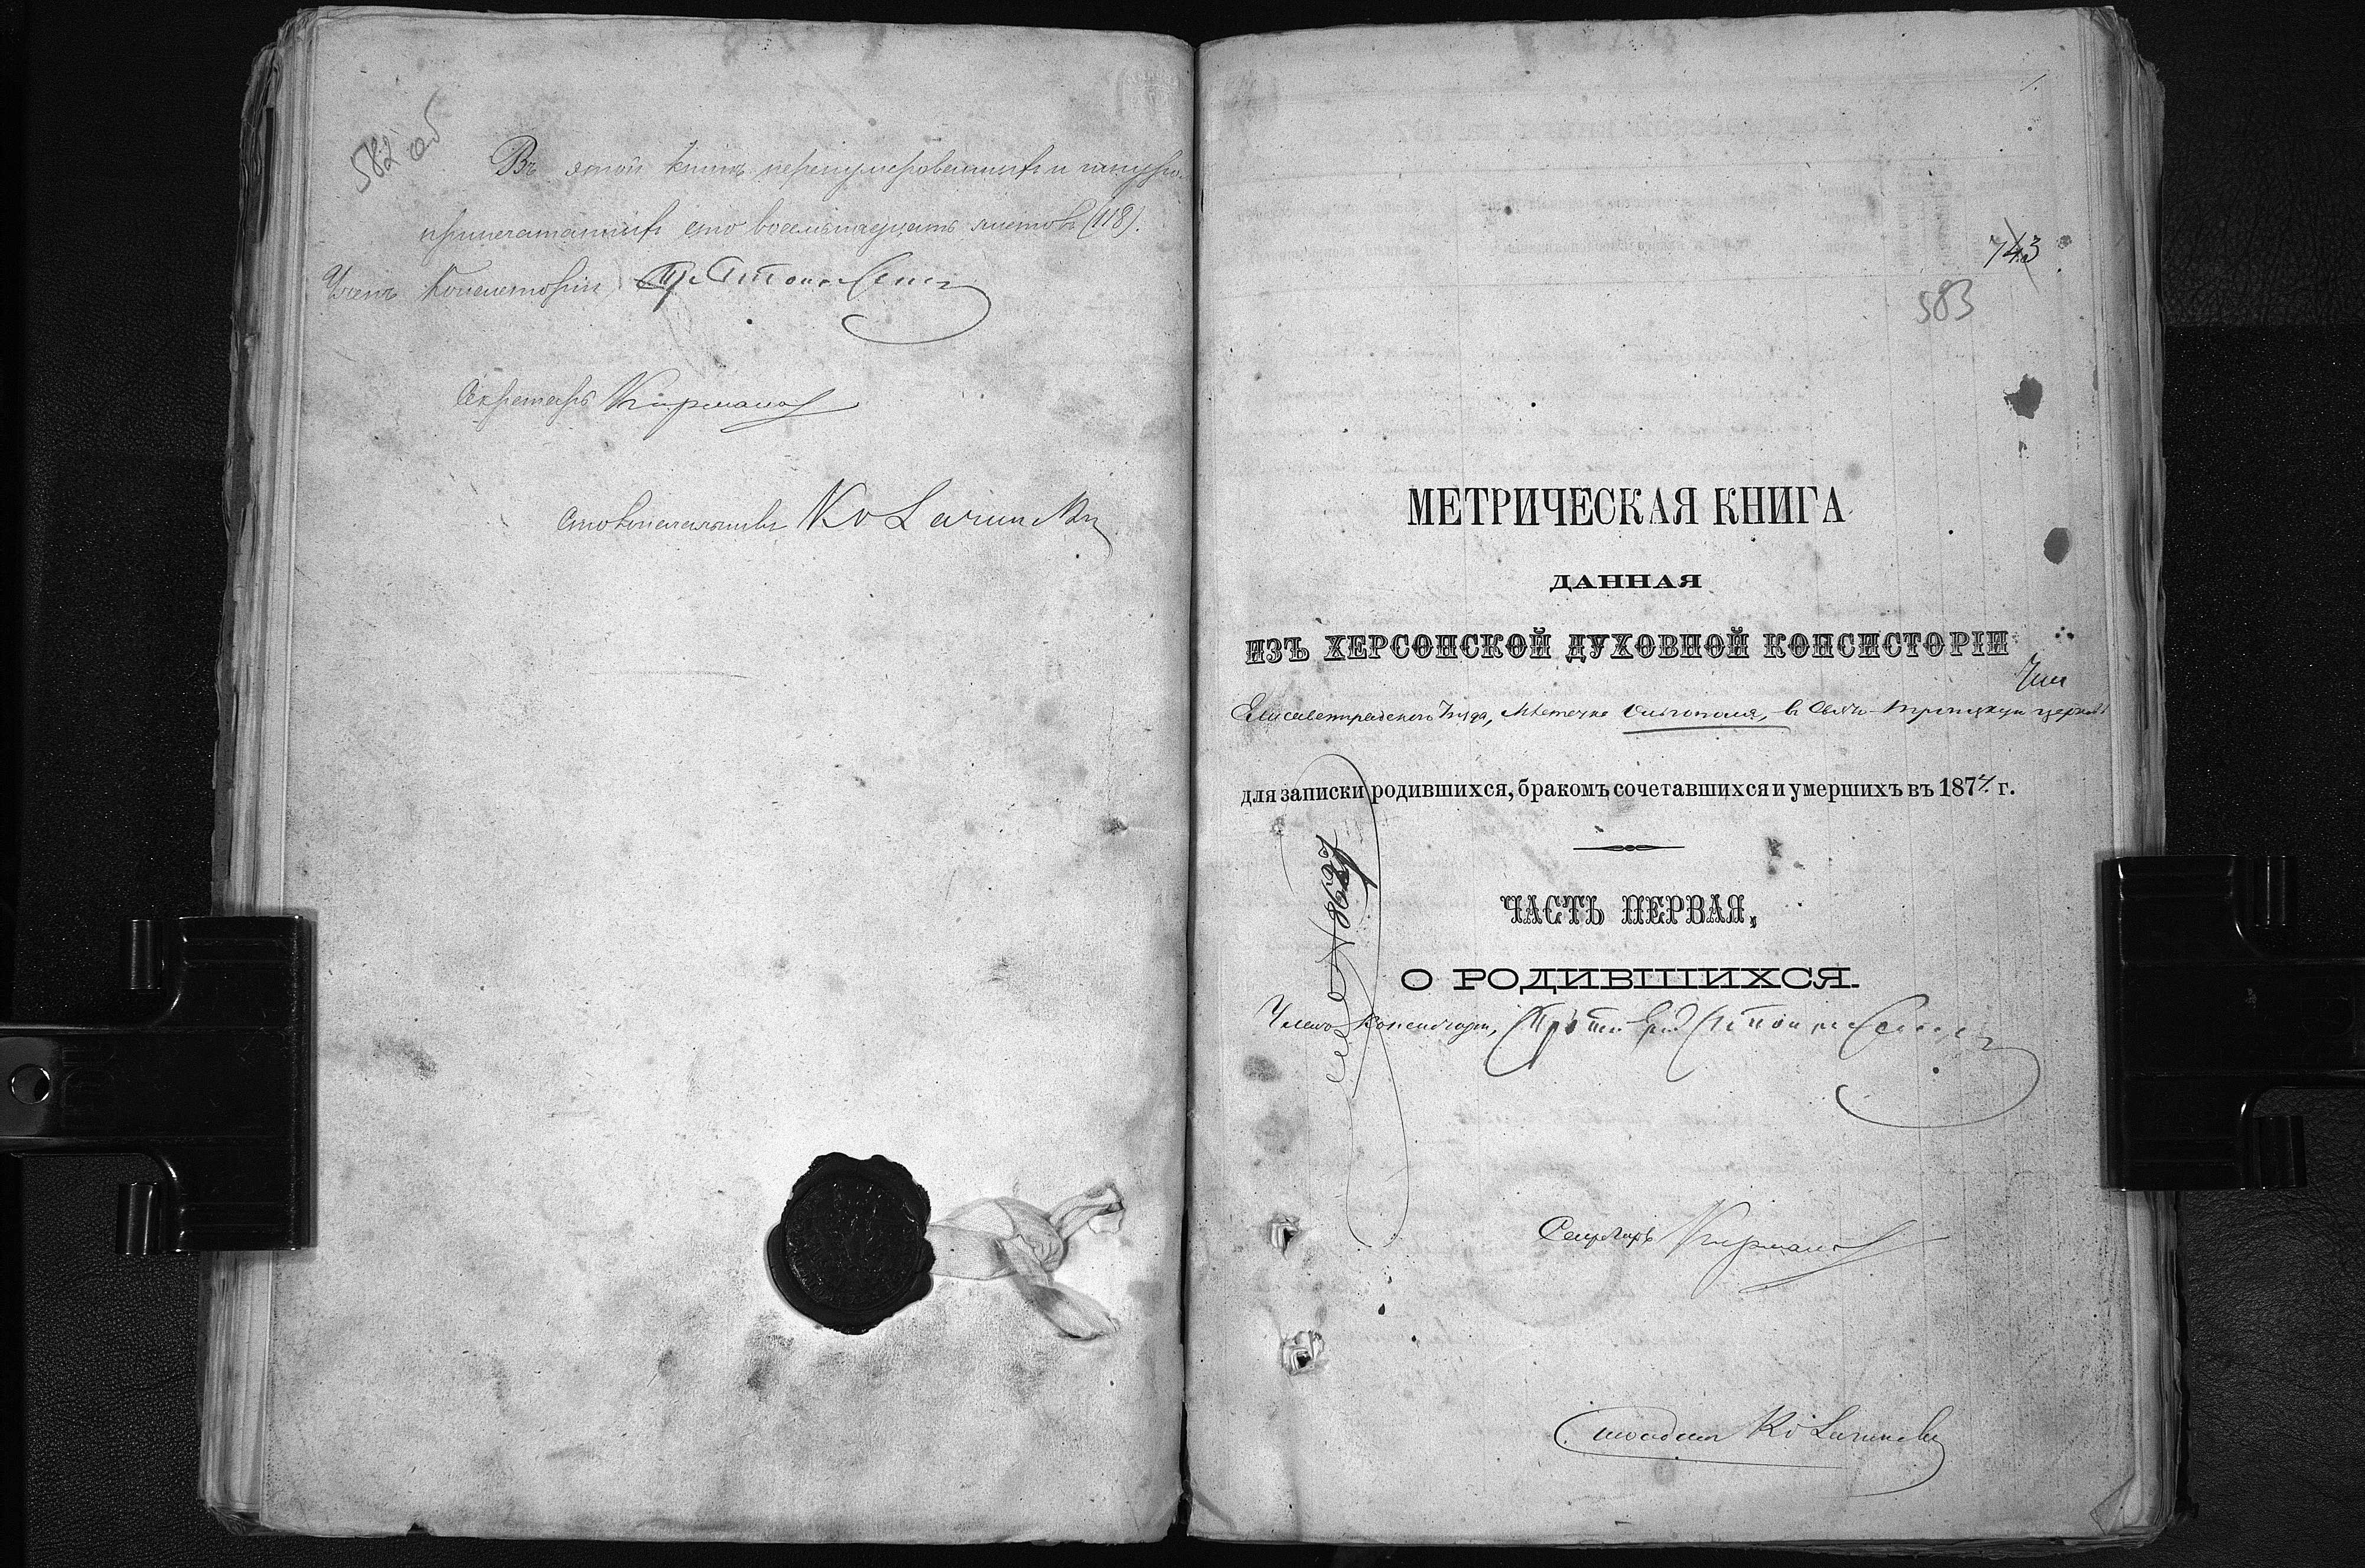 582 об
Въ этой книгѣ перенумерованныхъ и шнуро-
припечатанныхъ сто восемьнадцать листовъ (118).
Членъ Консисторіи,
Секретарь
Столоначальникъ
1.
743
583
МЕТРИЧЕСКАЯ КНИГА
ДАННАЯ
ИЗЪ ХЕРСОНСКОЙ ДУХОВНОЙ КОНСИСТОРІИ
Елисаветградского Уѣзда, Мѣстечка Ольгополя, в Свято-Троицкую церковь
для записки родившихся, бракомъ сочетавшихся и умершихъ въ 1874 г.
ЧАСТЬ ПЕРВАЯ,
О РОДИВШИХСЯ.
Членъ Консисторіи, Протоіерей
Секретарь